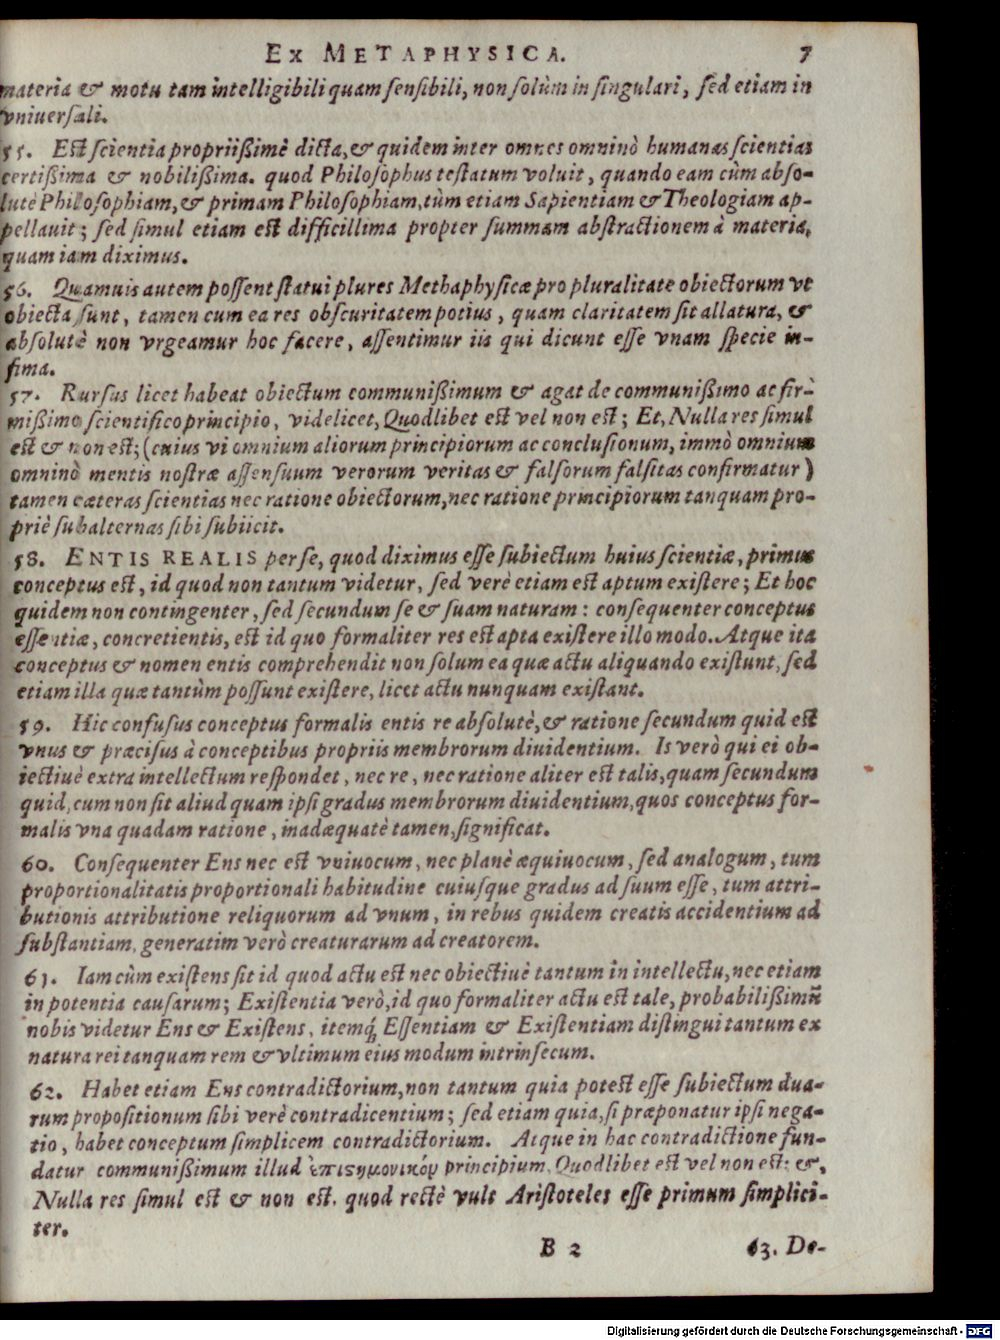 EX METAPHYSICA. 7
materia & motu tam intelligibili quam ſenſibili, non ſolùm in ſingulari, ſed etiam in
vniuerſali.
55. Eſt ſcientia propriißimè dicta, & quidem inter omnes omninò humanas ſcientias
certißima & nobilißima. quod Philoſophus teſtatum voluit, quando eam cùm abſo-
lutè Philoſophiam, & primam Philoſophiam, tùm etiam Sapientiam & Theologiam ap-
pellauit; ſed ſimul etiam eſt difficillima propter ſummam abſtractionem à materia,
quam iam diximus.
56. Quamuis autem poſſent ſtatui plures Methaphyſicæ pro pluralitate obiectorum vt
obiecta ſunt, tamen cum ea res obſcuritatem potius, quam claritatem ſit allatura, &
abſolutè non vrgeamur hoc facere, aſſentimur iis qui dicunt eſſe vnam ſpecie in-
fima.
57. Rurſus licet habeat obiectum communißimum & agat de communißimo at fir-
mißimo ſcientifico principio, videlicet, Quodlibet eſt vel non eſt; Et, Nulla res ſimul
eſt & non eſt; (cuius vi omnium aliorum principiorum ac concluſionum, immò omnium
omninò mentis noſtræ aſſenſuum verorum veritas & falſorum falſitas confirmatur)
tamen cæteras ſcientias nec ratione obiectorum, nec ratione principiorum tanquam pro-
priè ſubalternas ſibi ſubiicit.
58. ENTIS REALIS per ſe, quod diximus eſſe ſubiectum huius ſcientiæ, primus
conceptus eſt, id quod non tantum videtur, ſed verè etiam eſt aptum exiſtere; Et hoc
quidem non contingenter, ſed ſecundum ſe & ſuam naturam: conſequenter conceptus
eſſentiæ, concreti entis, eſt id quo formaliter res eſt apta exiſtere illo modo. Atque ita
conceptus & nomen entis comprehendit non ſolum ea quæ actu aliquando exiſtunt, ſed
etiam illa quæ tantùm poſſunt exiſtere, licet actu nunquam exiſtant.
59. Hic confuſus conceptus formalis entis re abſolutè, & ratione ſecundum quid eſt
vnus & præciſus à conceptibus propriis membrorum diuidentium. Is verò qui ei ob-
iectiuè extra intellectum reſpondet, nec re, nec ratione aliter eſt talis, quam ſecundum
quid, cum non ſit aliud quam ipſi gradus membrorum diuidentium, quos conceptus for-
malis vna quadam ratione, inadæquatè tamen, ſignificat.
60. Conſequenter Ens nec eſt vniuocum, nec planè æquiuocum, ſed analogum, tum
proportionalitatis proportionali habitudine cuiuſque gradus ad ſuum eſſe, tum attri-
butionis attributione reliquorum ad vnum, in rebus quidem creatis accidentium ad
ſubſtantiam, generatim verò creaturarum ad creatorem.
61. Iam cùm exiſtens ſit id quod actu eſt nec obiectiuè tantum in intellectu, nec etiam
in potentia cauſarum; Exiſtentia verò, id quo formaliter actu eſt tale, probabilißimũ
nobis videtur Ens & Exiſtens, itemq́; Eſſentiam & Exiſtentiam diſtingui tantum ex
natura rei tanquam rem & vltimum eius modum intrinſecum.
62. Habet etiam Ens contradictorium, non tantum quia poteſt eſſe ſubiectum dua-
rum propoſitionum ſibi verè contradicentium; ſed etiam quia, ſi præponatur ipſi nega-
tio, habet conceptum ſimplicem contradictorium. Atque in hac contradictione fun-
datur communißimum illud ἐπιστημονικόν principium, Quodlibet eſt vel non eſt: &,
Nulla res ſimul eſt & non eſt. quod rectè vult Ariſtoteles eſſe primum ſimplici-
ter.
B 2 63. De-
Digitalisierung gefördert durch die Deutsche Forschungsgemeinschaft - DFG